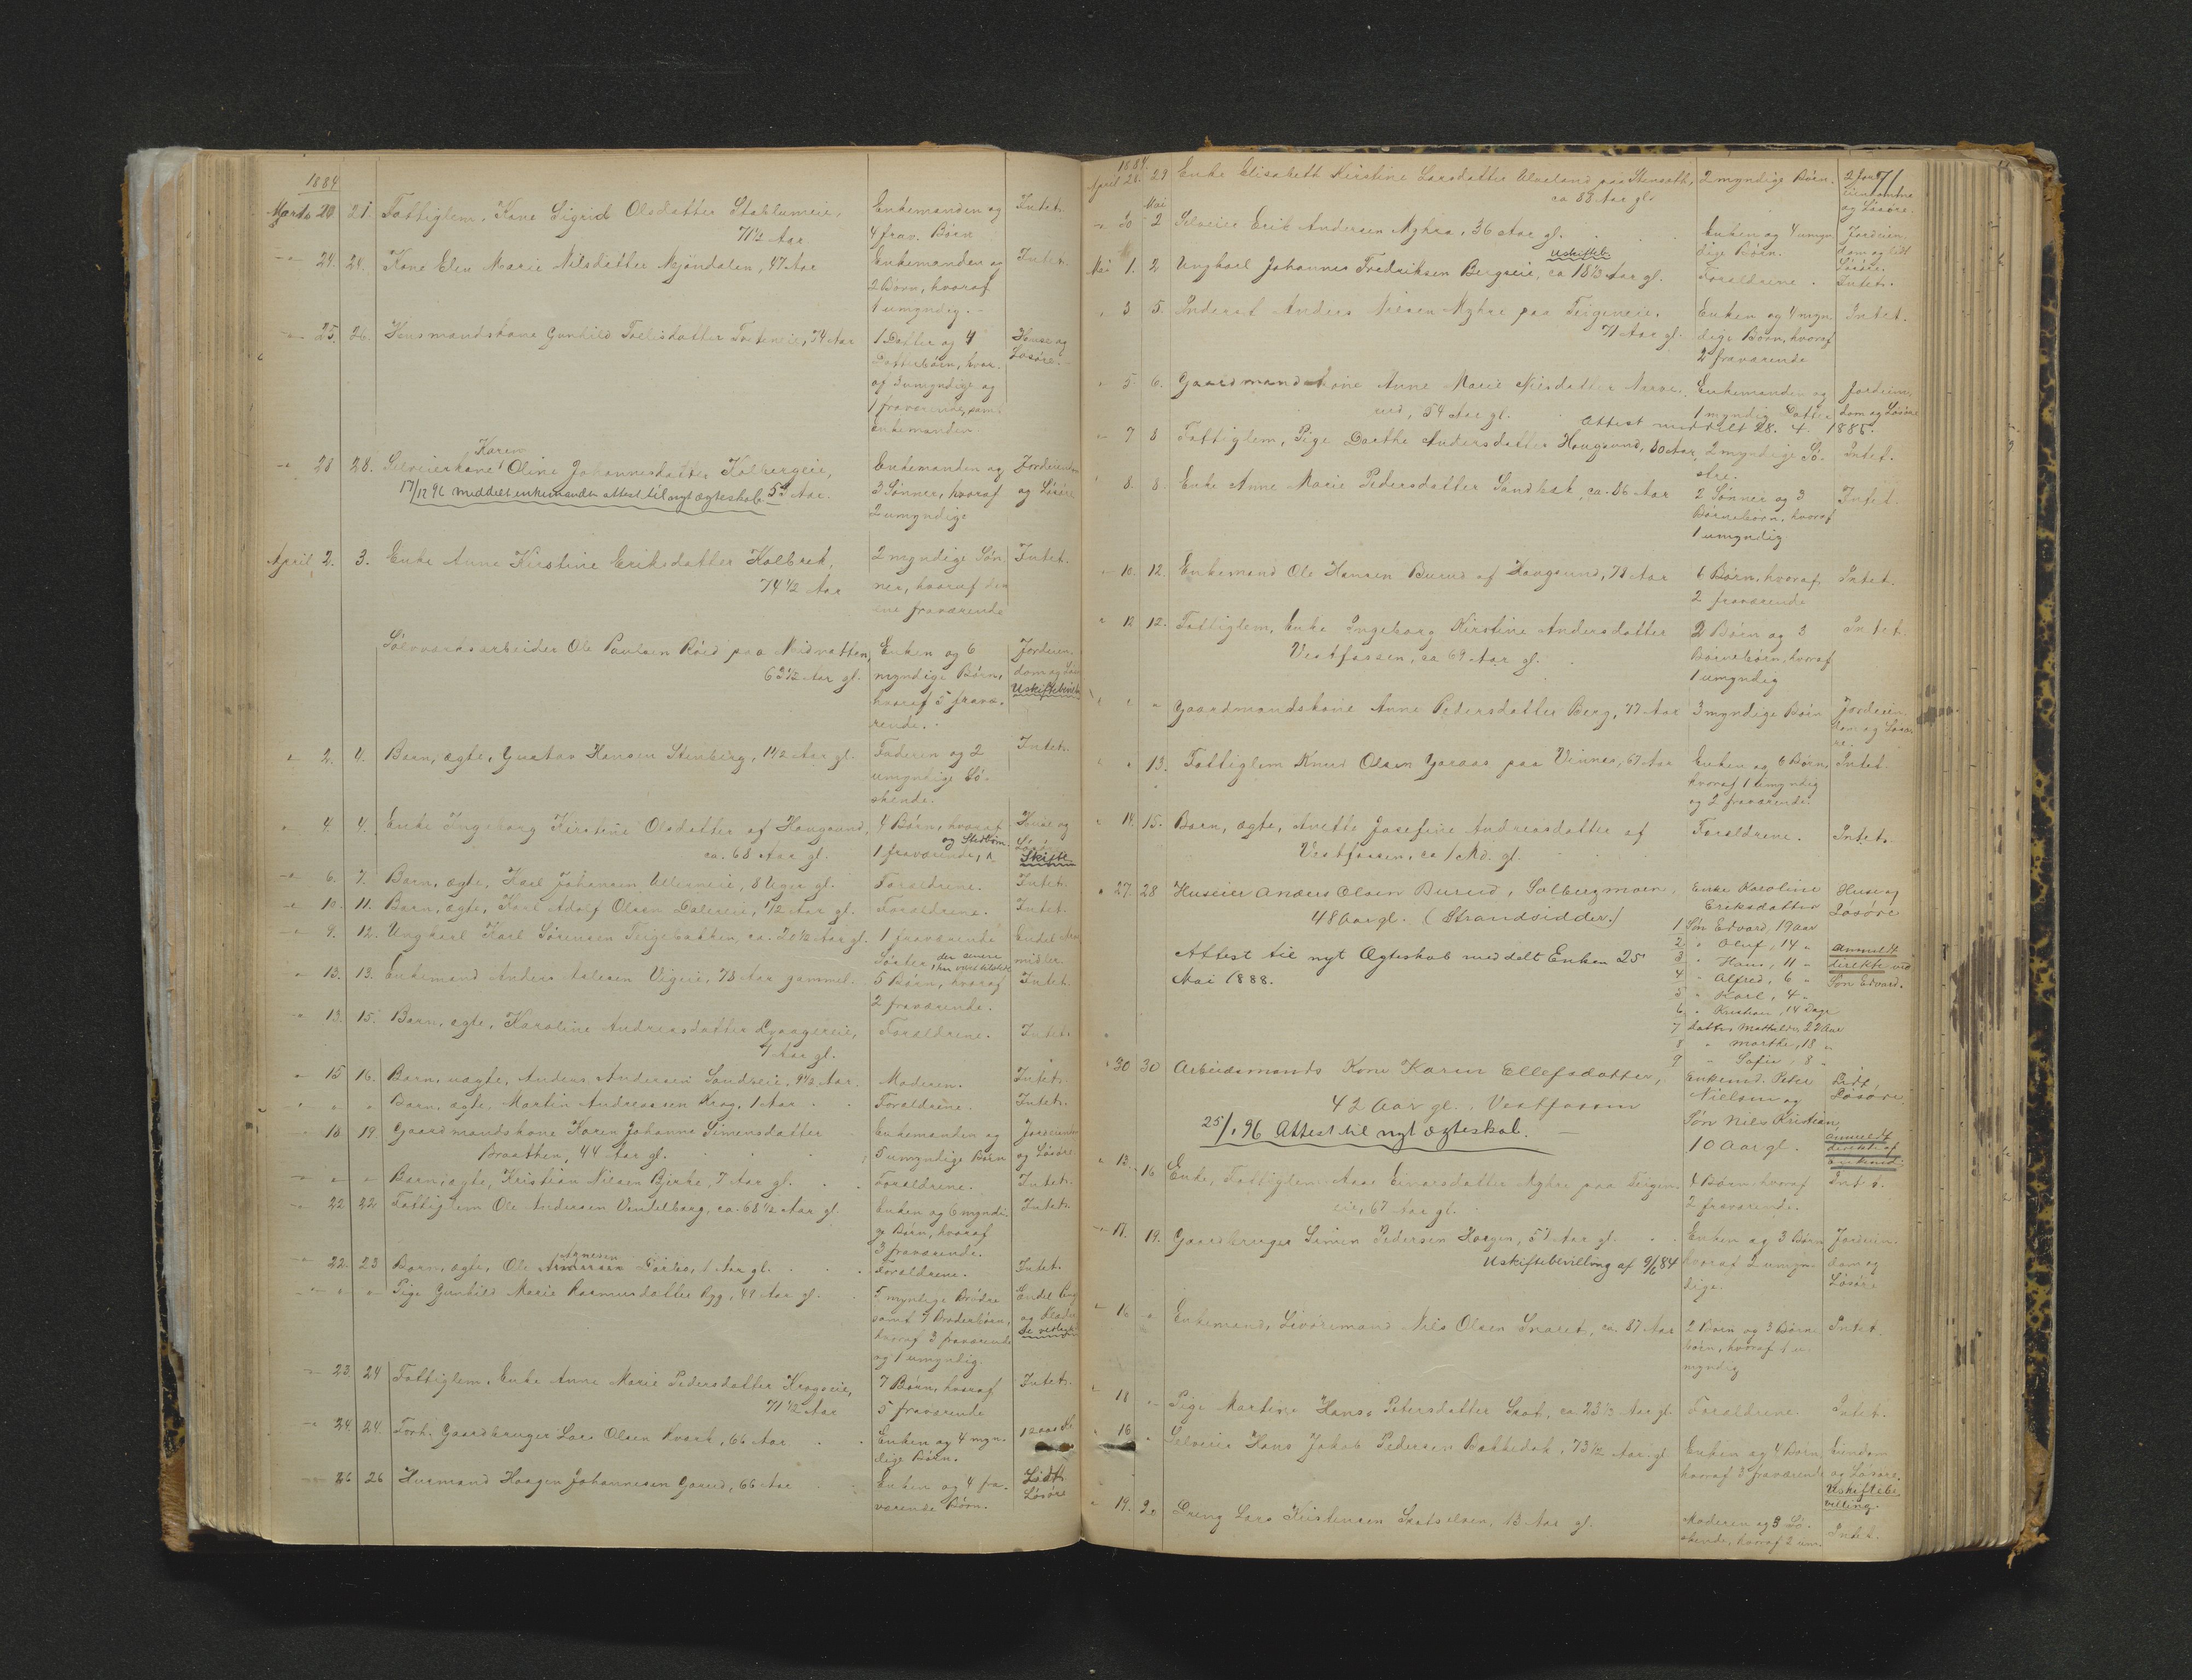 1884
Marts 20 21. Fattiglem, Kone Sigrid Olsdatter Stablumeie, Enkemanden og Intet.
71½ Aar 4 frav. Børn
24. 24. Kone Elen Marie Nilsdatter Mjøndalen, 47 Aar Enkemanden og Intet.
2 Børn, hvoraf
1 umyndig.
25. 26. Husmandskone Gunhild 74 Aar 1 Datter og 4 Huse og
Datterbørn, hvor- Løsøre.
af 3 umyndige og
1 fraværende, samt
Enkemanden.
Karen
28 28. Selveierkone Oline Johannesdatter Kolbergeie, Enkemanden og
17/12 96 meddelt enkemanden attest til nyt ægteskab. Aar. 3 Sønner, hvoraf og Løsøre
2 umyndige
April 2. 3. Enke Anne Kirstine Eriksdatter Kolbrek, 2 myndige Søn- Intet.
74½ Aar ner, hvoraf den
ene fraværende
Sølvværksarbeider Ole Paulsen Røid paa Enken og 6 Jordeien-
62½ Aar gl. myndige Børn, dom og
hvoraf 5 fravæ-
rende.
2. 4. Barn, ægte, Gustav Hansen Stenberg, 1½ Aar gl. Faderen og 2 Intet.
umyndige Sø-
skende.
4. 4. Enke Ingeborg Kirstine Olsdatter af Hougsund, 4 Børn, hvoraf Huse og
ca. 68 Aar gl. 1 fraværende, og Stedbørn Løsøre
Skifte
6. 7. Barn, ægte, Karl Johansen 8 Uger gl. Forældrene. Intet.
10. 11. Barn, ægte, Karl Adolf Olsen ½ Aar gl. Forældrene. Intet.
9. 12. Ungkarl Karl Sørensen Teigebakken, ca. 20½ Aar gl. 1 fraværende Endel
Søster
13. 13. Enkemand Anders 78 Aar gammel. 5 Børn, hvoraf Intet.
2 fraværende.
13. 15. Barn, ægte, Karoline Andreasdatter Forældrene. Intet.
Aar gl.
15 16. Barn, uægte, Anders Andersen 9½ Aar. Moderen. Intet.
Barn, ægte, Martin Andreassen Krog, 1 Aar Forældrene. Intet.
18 19 Gaardmandskone Karen Johanne Simensdatter Enkemanden og
Braathen, 44 Aar gl. 5 umyndige Børn og Løsøre
Barn, ægte, Kristian Nilsen Bjerke, 7 Aar gl. Forældrene. Intet.
22 22 Fattiglem Ole Andersen Vendelborg, ca. 68½ Aar gl. Enken og 6 myndi- Intet.
ge Børn, hvoraf
3 fraværende.
Agnesen
22. 23 Barn, ægte, Ole 1 Aar gl. Forældrene. Intet.
Pige Gunhild Marie Rasmusdatter Ryg, 49 Aar gl. 5 myndige Brødre Endel
samt 7 Broderbørn,
hvoraf 3 fraværende
og 1 umyndig.
23. 24 Fattiglem, Enke Anne Marie Pedersdatter Krogseie, 7 Børn, hvoraf Intet.
71½ Aar 5 fraværende
24. 24. Forh. Gaardbruger Lars Olsen 66 Aar Enken og 4 myn-
dige Børn.
26 26 Husmand Haagen Johannesen 66 Aar Enken og 4 fra- Lidt
værende Børn. Løsøre
1884.
April 28. 29 Enke Elisabeth Kirstine Larsdatter paa Stenseth, 2 myndige Børn. 71
ca 88 Aar gl. og Løsøre.
Mai
30 2 Selveier Erik Andersen Myhra, 36 Aar gl. Enken og 4 umyn- Jordeien-
Uskifteb. dige Børn. dom og lidt
Løsøre.
Mai 1. 2 Ungkarl Johannes Fredriksen Bergseie, ca 18⅓ Aar gl. Forældrene. Intet.
3 5. Inderst Anders Nilsen Myhre paa Teigeneie, Enken og 4 myn- Intet.
71 Aar gl. dige Børn, hvoraf
2 fraværende
5. 6. Gaardmandskone Anne Marie Nilsdatter Enkemanden og Jordeien-
rud, 54 Aar gl. 1 myndig Datter dom og Løsøre
Attest meddelt 28. 4. 1885.
7 8 Fattiglem, Pige Dorthe Andersdatter Hougsund, 80 Aar 2 myndige Sø- Intet.
stre.
8. 8. Enke Anne Marie Pedersdatter Sandbæk, ca. 86 Aar 2 Sønner og 3 Intet.
Børnebørn, hvoraf
1 umyndig
10. 12. Enkemand Ole Hansen Burud af Hougsund, 78 Aar 6 Børn, hvoraf Intet.
2 fraværende
12 12. Fattiglem, Enke Ingeborg Kirstine Andersdatter 2 Børn og 3 Intet.
Vestfossen, ca 69 Aar gl. Børnebørn, hvoraf
1 umyndig
Gaardmandskone Anne Pedersdatter Berg, 77 Aar 3 myndige Børn Jordeien-
dom og Løsø-
re.
13. Fattiglem Knud Olsen paa Vinnes, 67 Aar Enken og 6 Børn, Intet.
hvoraf 1 umyndig
og 2 fraværende.
14. 15. Barn, ægte, Anette Josefine Andreasdatter af Forældrene. Intet.
Vestfossen, ca 1 Md. gl.
27. 28 Huseier Anders Olsen Burud, Solbergmoen, Enke Karoline Huse og
48 Aar gl. (Strandsidder.) Eriksdatter Løsøre
1 Søn Edvard, 19 Aar
Attest til nyt Ægteskab meddelt Enken 25 2 " Oluf, 14 " anmeldt
Mai 1888. 3 " Hans, 11 " direkte ved
4 " Alfred, 6 " Søn Edvard.
5 " Karl, 4 "
6 " Kristian, 14 Dage
7 datter Mathilde, 22 Aar
8 " Marthe, 18 "
9 " Sofie, 8 "
30 30 Arbeidsmands Kone Karen Ellefsdatter, Enkemd. Peter Lidt
42 Aar gl. Vestfossen Nielsen og Løsøre.
25/1 96 Attest til nyt ægteskab. Søn Nils Kristian,
10 Aar gl. anmeldt
direkte af
enkemd.
13. 16 Enke, Fattiglem Aase Einarsdatter Myhre paa Teigen- 4 Børn, hvoraf Intet.
eie, 67 Aar gl. 2 fraværende.
17. 19. Gaardbruger Simen Pedersen Horgen, 57 Aar gl. Enken og 3 Børn Jordeien-
Uskiftebevilling af 9/6 84 hvoraf 2 umyn- dom og
dige. Løsøre
16 Enkemand, Livøremand Nils Olsen ca. 87 Aar 2 Børn og 3 Børne- Intet.
børn, hvoraf 1 u-
myndig
18 Pige Martine Hans Petersdatter ca. 23⅓ Aar gl. Forældrene. Intet.
16 Selveier Hans Jakob Pedersen Bakkedok, 73½ Aar gl. Enken og 4 Børn, Eiendom
hvoraf 3 fraværende og Løsøre.
Uskiftebe-
villing.
19. 20 Dreng Lars Kristensen 13 Aar gl. Moderen og 3 Sø- Intet.
skende, hvoraf 2 um.